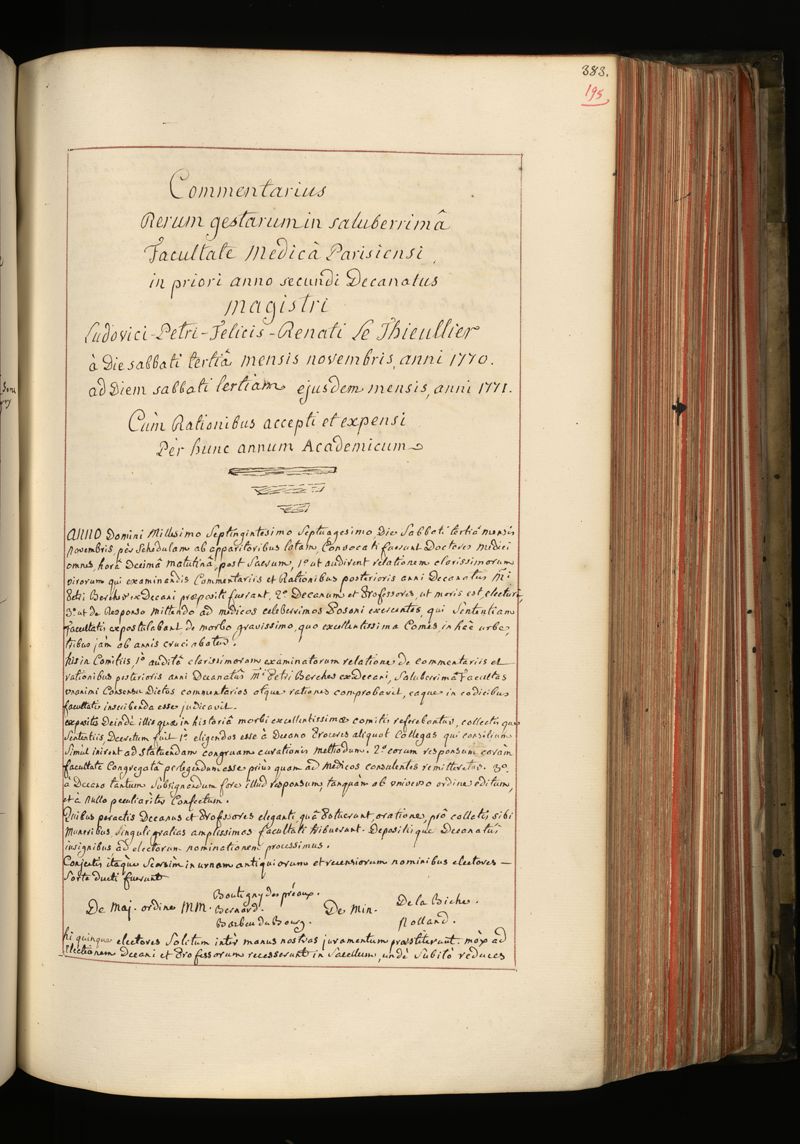 383.
195
Commentarius
Rerum gestarum in saluberrimâ
Facultate Medicâ Parisiensi,
in priori anno secundi Decanatus
magistri
Ludovici-Petri-Felicis-Renati Le Thieullier
à Die sabbati tertiâ mensis novembris, anni 1770.
ad Diem sabbati tertiam ejusdem mensis, anni 1771.
Cùm Rationibus accepti et expensi
Pèr hunc annum Academicum
ANNO Domini Millesimo Septingintesimo Septuagesimo Die Sabbati tertiâ mensis
novembris, pèr Schedulam ab apparitoribus latam, Convocati fuerunt Doctores Medici
omnes, horâ Decimâ matutinâ, post Sacrum, 1.º ut audirent relationem clarissimorum
virorum qui examinandis Commentariis et Rationibus posterioris anni Decanatus M.i
Petri Bercher ex Decani præpositi fuerant, 2.º Decanum et Professores, ut moris est, electuri,
3.º ut de Responso mittendo ad medicos celeberrimos Posani exercentes qui Sententiam
facultatis expostulabant de morbo gravissimo, quo excellentissima Comes in hac urbe,
tribus jam ab annis cruciabatur.
his in Comitiis, 1.º auditâ clarissimorum examinatorum relatione de commentariis et
rationibus posterioris anni Decanatûs M.i Petri Bercher ex Decani, Saluberrima Facultas
unanimi Consensu Dictos commentarios atque rationes comprobavit, eaque in codicibus
facultatis inscribenda esse judicavit.
expositis Deindè illis quæ in historiâ morbi excellentissimæ comitis referebantur, collectis que
Sententiis, Decretum fuit 1.º eligendos esse à Decano Proceres aliquot Collegas qui consilium
Simul inirent ad statuendam congruam curationis methodum. 2.º eorum responsum coràm
facultate Congregatâ perlegendum esse priùs quam ad Medicos consulentes remitteretur. 3.º
à Decano tantum Subsignandum fore illud responsum, tanquàm ab universo ordine editum,
et à nullo peculiaritèr Confectum.
Quibus peractis Decanus et Professores eleganti, quâ potuerunt, oratione, prò collatis sibi
Muneribus Singuli gratias amplissimas facultati tribuerunt. Depositisque Decanatûs
insignibus ad electorum nominationem processimus.
Conjectis itaque Seorsim in urnam antiquiorum et recensiorum nominibus electores —
Sorte ducti fuerunt
De Maj. ordine MM. Boutigny des préaux. Bernard. Barbeu du Bourg. De Min. De la Biche. Rolland.
hi quinque electores Solitum intèr manus nostras juramentum præstiterunt. mòx ad
Electionem Decani et Professorum recesserunt in Sacellum, undè Subitò reduces